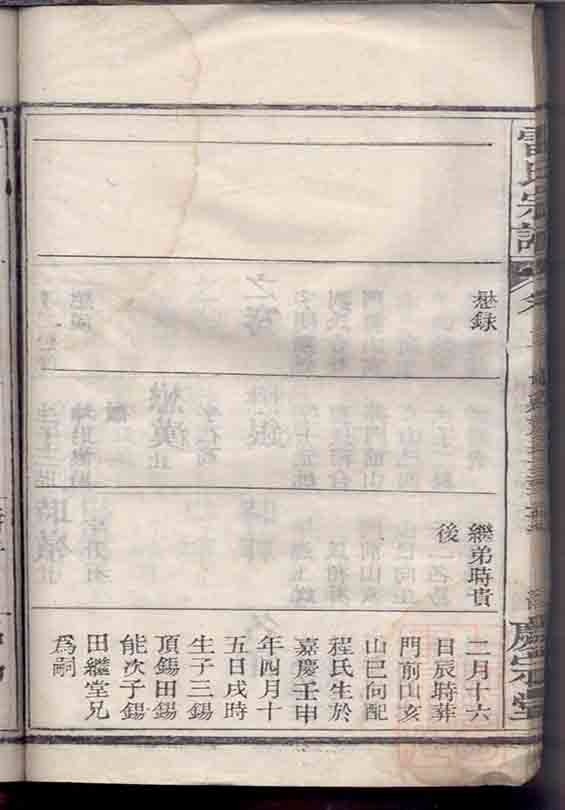 氏宗譜
慶宗堂
懋録
繼弟時貴
後
二月十六
日辰時葬
門前山亥
山巳向配
程氏生於
嘉慶壬申
年四月十
五日戌時
生子三錫
頂錫田錫
能次子錫
田繼堂兄
爲嗣